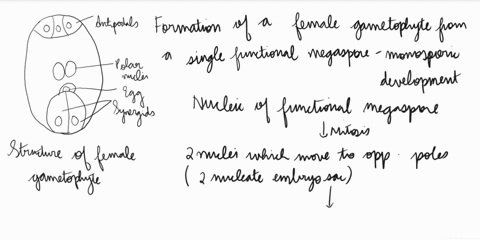 Antipodals
Polar
nuclei
Egg
Synergids
Structure of female
gametophyte
Formation of a female gametophyte from
a single functional megaspore - monosporic
development
Nucleic of functional megaspore
↓ Mitosis
2 nuclei which move to opp. poles
( 2 nucleate embryo sac)
↓